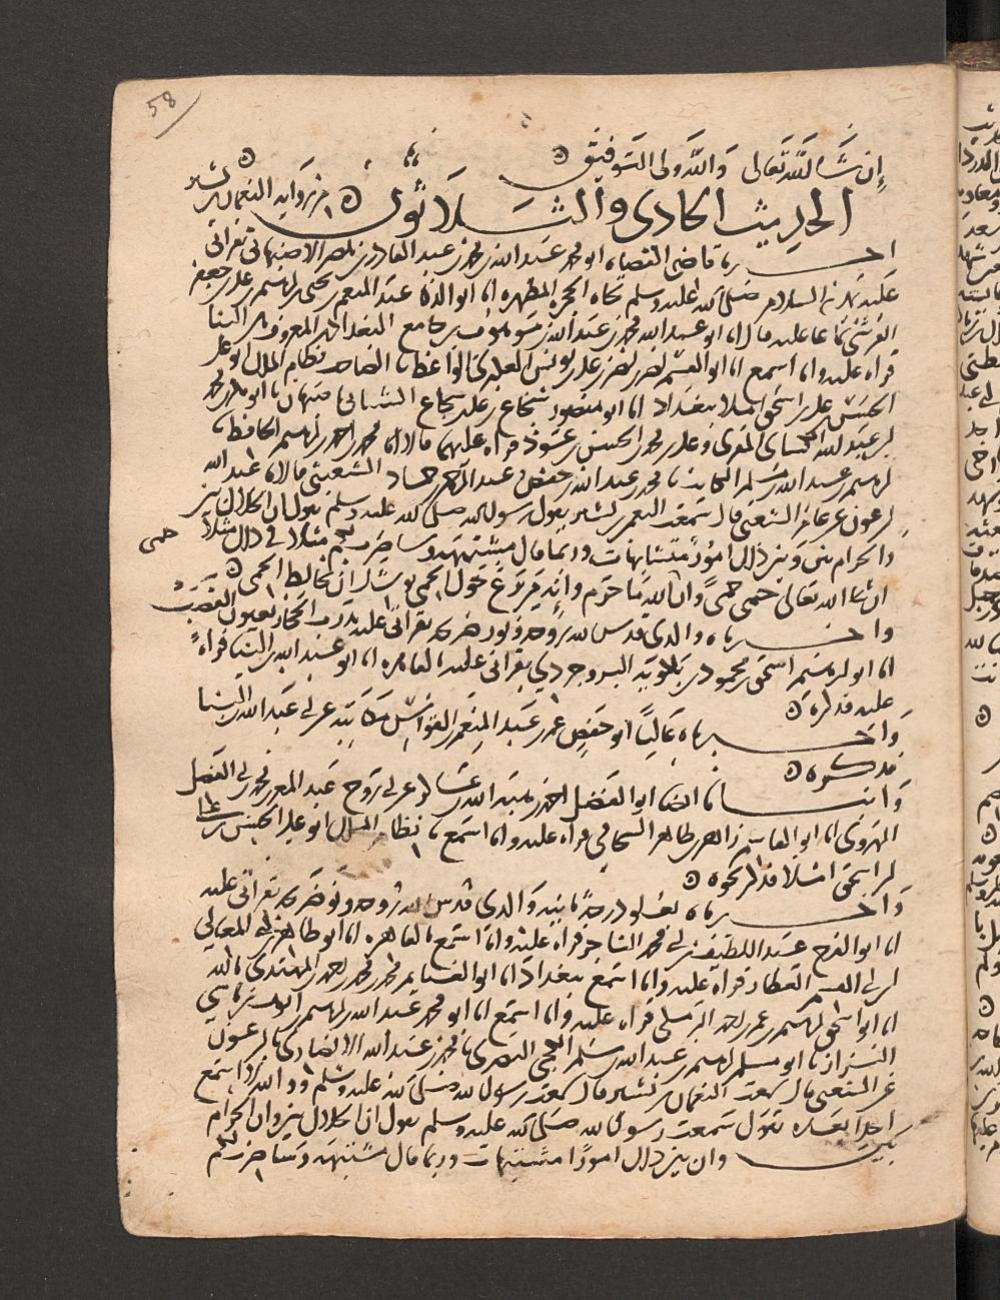 58
إن شاء الله تعالى والله ولي التوفيق
الحديث الحادي والثلاثون من رواية النعمان بن بشير
اخبرنا قاضي القضاه ابو محمد عبد الله بن محمد بن عبد القادر بن ناصر الانصاري بقراتي
عليه بمدينة السلام صلى الله عليه وسلم تجاه الحجره المطهره انا ابو الذكا عبد المنعم بن يحيى بن ابرهيم بن علي بن جعفر
القرشي سماعا عليه قال انا ابو عبد الله محمد بن عبد الله بن موهوب بن جامع البغدادي المعروف بابن البنا
قراه عليه وانا اسمع انا ابو القسم نصر بن نصر بن علي بن يونس العكبري الواعظ نا الصاحب نظام الملك ابو علي
الحسن بن علي بن اسحق املا ببغداد انا ابو منصور شجاع بن علي بن شجاع الشيباني باصبهان نا ابو محمد
بن عبد الله الكسائي المقري وعلي بن محمد بن الحسين قراه عليهما قالا انا محمد بن احمد بن ابرهيم الحافظ نا
ابرهيم بن عبد الله بن مسلم الكاتب نا محمد بن عبد الله بن حفص عبد الرحمن بن حماد الشعيثي قالا نا عبد الله
بن عون عن عامر الشعبي قال سمعت النعمن بن بشير يقول سمعت رسول الله صلى الله عليه وسلم يقول ان الحلال بين
والحرام بين وبين ذلك امور متشابهات وربما قال مشتبهه وساضرب لكم مثلا في ذلك مثلا
ان الله تعالى حمى حمى وان حمى الله ما حرم وانه من يرتع حول الحمى يوشك ان يخالط الحمى
واخبرناه والدي قدس الله روحه ونور ضريحه بقراتي عليه بدرب الحجار
انا ابو ابرهيم اسحق بن محمود بن بلكويه البروجردي بقراتي عليه بالقاهره انا ابو عبد الله بن البنا قراءة
عليه فذكره
واخبرناه عاليا ابو حفص عمر بن عبد المنعم بن القواس مكاتبه عن ابي عبد الله بن البنا
فذكره
وانبانا ايضا ابو الفضل احمد بن هبه الله بن عساكر عن ابي روح عبد المعز بن محمد بن ابي الفضل
الهروي انا ابو القاسم زاهر بن طاهر الشحامي قراه عليه وانا اسمع نا نظام الملك ابو علي الحسن بن علي
بن اسحق املا فذكر نحوه
واخبرناه بعلو درجة ثانيه والدي قدس الله روحه ونور ضريحه بقراتي عليه
انا ابو الفرج عبد اللطيف بن ابي محمد التاجر قراه عليه وانا اسمع بالقاهره انا ابو طاهر بن ابي المعالي
بن ابي القسم العطار قراه عليه وانا اسمع ببغداد انا ابو الغنايم محمد بن محمد بن احمد المهتدي بالله
انا ابو اسحق ابرهيم بن عمر بن احمد البرمكي قراه عليه وانا اسمع انا ابو محمد عبد الله بن ابرهيم بن ايوب بن ماسي
البزاز نا ابو مسلم ابرهيم بن عبد الله بن مسلم الكجي البصري نا محمد بن عبد الله الانصاري نا بن عون
عن الشعبي قال سمعت النعمان بن بشير قال سمعت رسول الله صلى الله عليه وسلم ووالله لا اسمع
احدا بعده يقول سمعت رسول الله صلى الله عليه وسلم يقول ان الحلال بين وان الحرام
بين وان بين ذلك امورا مشتبهات وربما قال مشتبهه وساضرب لكم